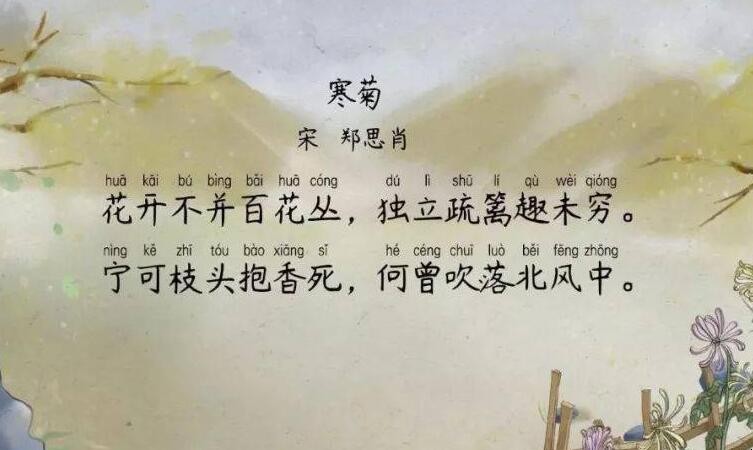 寒菊
宋 郑思肖
huā kāi bú bìng bǎi huā cóng dú lì shū lí qù wèi qióng
花开不并百花丛，独立疏篱趣未穷。
nìng kě zhī tóu bào xiāng sǐ hé céng chuī luò běi fēng zhōng
宁可枝头抱香死，何曾吹落北风中。